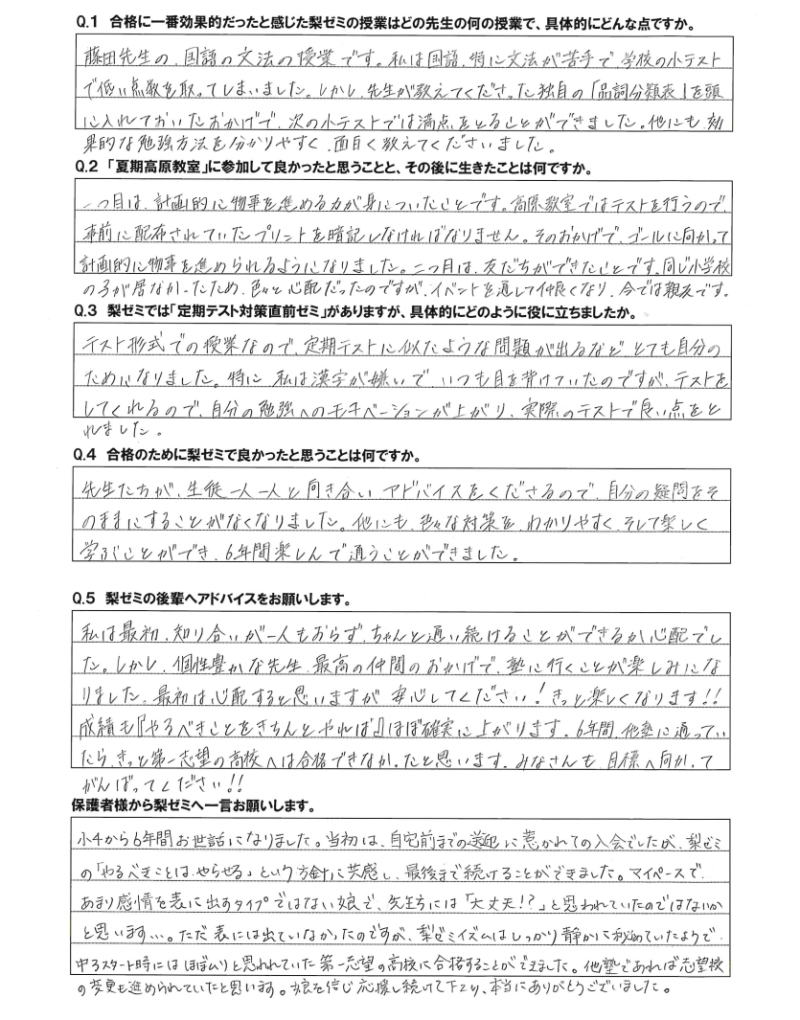 Q.1 合格に一番効果的だったと感じた梨ゼミの授業はどの先生の何の授業で、具体的にどんな点ですか。
藤田先生の、国語の文法の授業です。私は国語、特に文法が苦手で、学校の小テスト
で低い点数を取ってしまいました。しかし、先生が教えてくださった独自の「品詞分類表」を頭
に入れておいたおかげで、次の小テストでは満点をとることができました。他にも効
果的な勉強方法を分かりやすく、面白く教えてくださいました。
Q.2 「夏期高原教室」に参加して良かったと思うことと、その後に生きたことは何ですか。
一つ目は、計画的に物事を進める力が身についたことです。高原教室ではテストを行うので、
事前に配布されていたプリントを暗記しなければなりません。そのおかげで、ゴールに向かって
計画的に物事を進められるようになりました。二つ目は、友だちができたことです。同じ小学校
の子が居なかったため、色々と心配だったのですが、イベントを通して仲良くなり、今では親友です。
Q.3 梨ゼミでは「定期テスト対策直前ゼミ」がありますが、具体的にどのように役に立ちましたか。
テスト形式での授業なので、定期テストに似たような問題が出るなど、とても自分の
ためになりました。特に、私は漢字が嫌いで、いつも目を背けていたのですが、テストを
してくれるので、自分の勉強へのモチベーションが上がり、実際のテストで良い点をと
れました。
Q.4 合格のために梨ゼミで良かったと思うことは何ですか。
先生たちが、生徒一人一人と向き合い、アドバイスをくださるので、自分の疑問をそ
のままにすることがなくなりました。他にも、色々な対策を、わかりやすく、そして楽しく
学ぶことができ、6年間楽しんで通うことができました。
Q.5 梨ゼミの後輩へアドバイスをお願いします。
私は最初、知り合いが一人もおらず、ちゃんと通い続けることができるか心配でし
た。しかし、個性豊かな先生、最高の仲間のおかげで、塾に行くことが楽しみにな
りました。最初は心配すると思いますが、安心してください！きっと楽しくなります!!
成績も『やるべきことをきちんとやれば』ほぼ確実に上がります。6年間、他塾に通ってい
たら、きっと第一志望の高校へは合格できなかったと思います。みなさんも、目標へ向かって
がんばってください!!
保護者様から梨ゼミへ一言お願いします。
小4から6年間お世話になりました。当初は、自宅前までの送迎に惹かれての入会でしたが、梨ゼミ
の「やるべきことは、やらせる」という方針に共感し、最後まで続けることができました。マイペースで、
あまり感情を表に出すタイプではない娘で、先生方には「大丈夫!?」と思われていたのではないか
と思います…。ただ表には出ていなかったのですが、梨ゼミイズムはしっかり静かに秘めていたようで、
中3スタート時にはほぼムリと思われていた第一志望の高校に合格することができました。他塾であれば志望校
の変更も進められていたと思います。娘を信じ応援し続けて下さり、本当にありがとうございました。